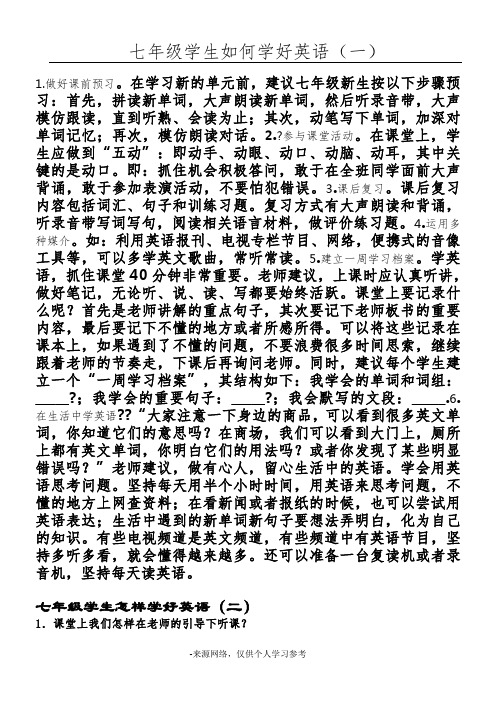 七年级学生如何学好英语（一）
1.做好课前预习。在学习新的单元前，建议七年级新生按以下步骤预
习：首先，拼读新单词，大声朗读新单词，然后听录音带，大声
模仿跟读，直到听熟、会读为止；其次，动笔写下单词，加深对
单词记忆；再次，模仿朗读对话。2.?参与课堂活动。在课堂上，学
生应做到“五动”：即动手、动眼、动口、动脑、动耳，其中关
键的是动口。即：抓住机会积极答问，敢于在全班同学面前大声
背诵，敢于参加表演活动，不要怕犯错误。3.课后复习。课后复习
内容包括词汇、句子和训练习题。复习方式有大声朗读和背诵，
听录音带写词写句，阅读相关语言材料，做评价练习题。4.运用多
种媒介。如：利用英语报刊、电视专栏节目、网络，便携式的音像
工具等，可以多学英文歌曲，常听常读。5.建立一周学习档案。学英
语，抓住课堂40分钟非常重要。老师建议，上课时应认真听讲，
做好笔记，无论听、说、读、写都要始终活跃。课堂上要记录什
么呢？首先是老师讲解的重点句子，其次要记下老师板书的重要
内容，最后要记下不懂的地方或者所感所得。可以将这些记录在
课本上，如果遇到了不懂的问题，不要浪费很多时间思索，继续
跟着老师的节奏走，下课后再询问老师。同时，建议每个学生建
立一个“一周学习档案”，其结构如下：我学会的单词和词组：
_____?；我学会的重要句子：_____?；我会默写的文段：_____.6.
在生活中学英语??“大家注意一下身边的商品，可以看到很多英文单
词，你知道它们的意思吗？在商场，我们可以看到大门上，厕所
上都有英文单词，你明白它们的用法吗？或者你发现了某些明显
错误吗？”老师建议，做有心人，留心生活中的英语。学会用英
语思考问题。坚持每天用半个小时时间，用英语来思考问题，不
懂的地方上网查资料；在看新闻或者报纸的时候，也可以尝试用
英语表达；生活中遇到的新单词新句子要想法弄明白，化为自己
的知识。有些电视频道是英文频道，有些频道中有英语节目，坚
持多听多看，就会懂得越来越多。还可以准备一台复读机或者录
音机，坚持每天读英语。
七年级学生怎样学好英语（二）
1．课堂上我们怎样在老师的引导下听课？
-来源网络，仅供个人学习参考